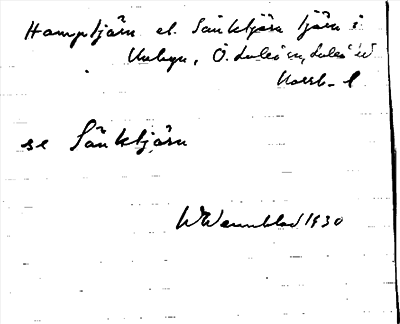 Hamptjärn el. Sänktjärn tjärn i
Unbyn, Ö. Luleå sn, Luleå td
Norrb. l
se Sänktjärn
W Wennblad 1930